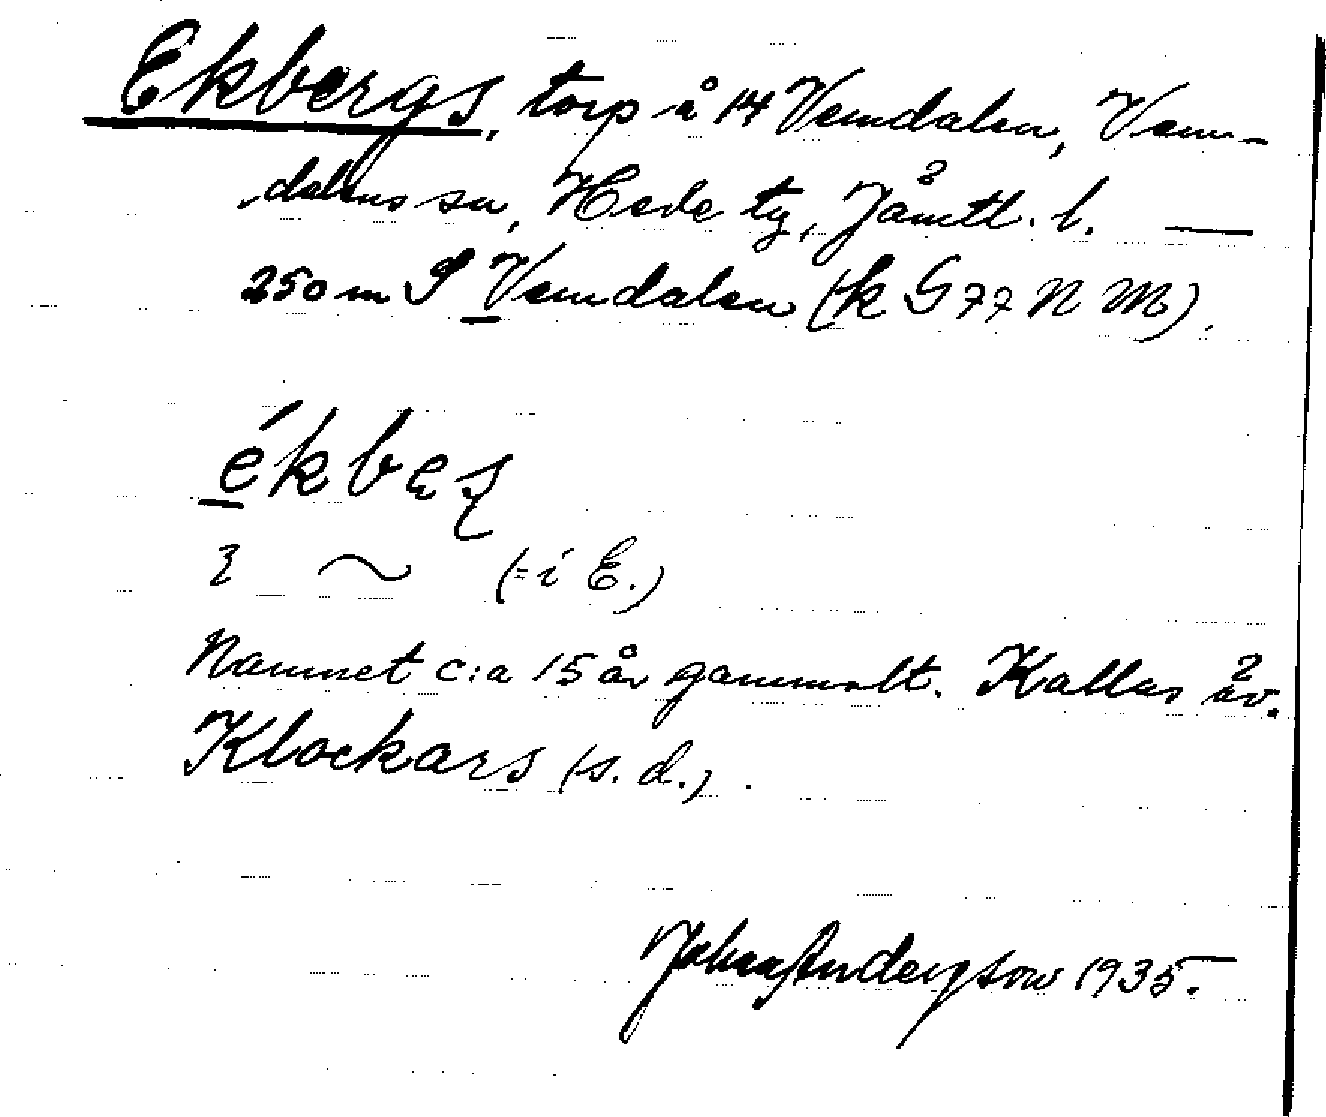 Ekbergs, torp å 14 Vemdalen, Vem-
dalens sn, Hede tg, Jämtl. l. —
250 m S Vemdalen (k G 77 N M).
ékbeʂ
~ (= i E.)
Namnet c:a 15 år gammalt. Kallas äv.
Klockars (s. d.).
Johan Anderson 1935.